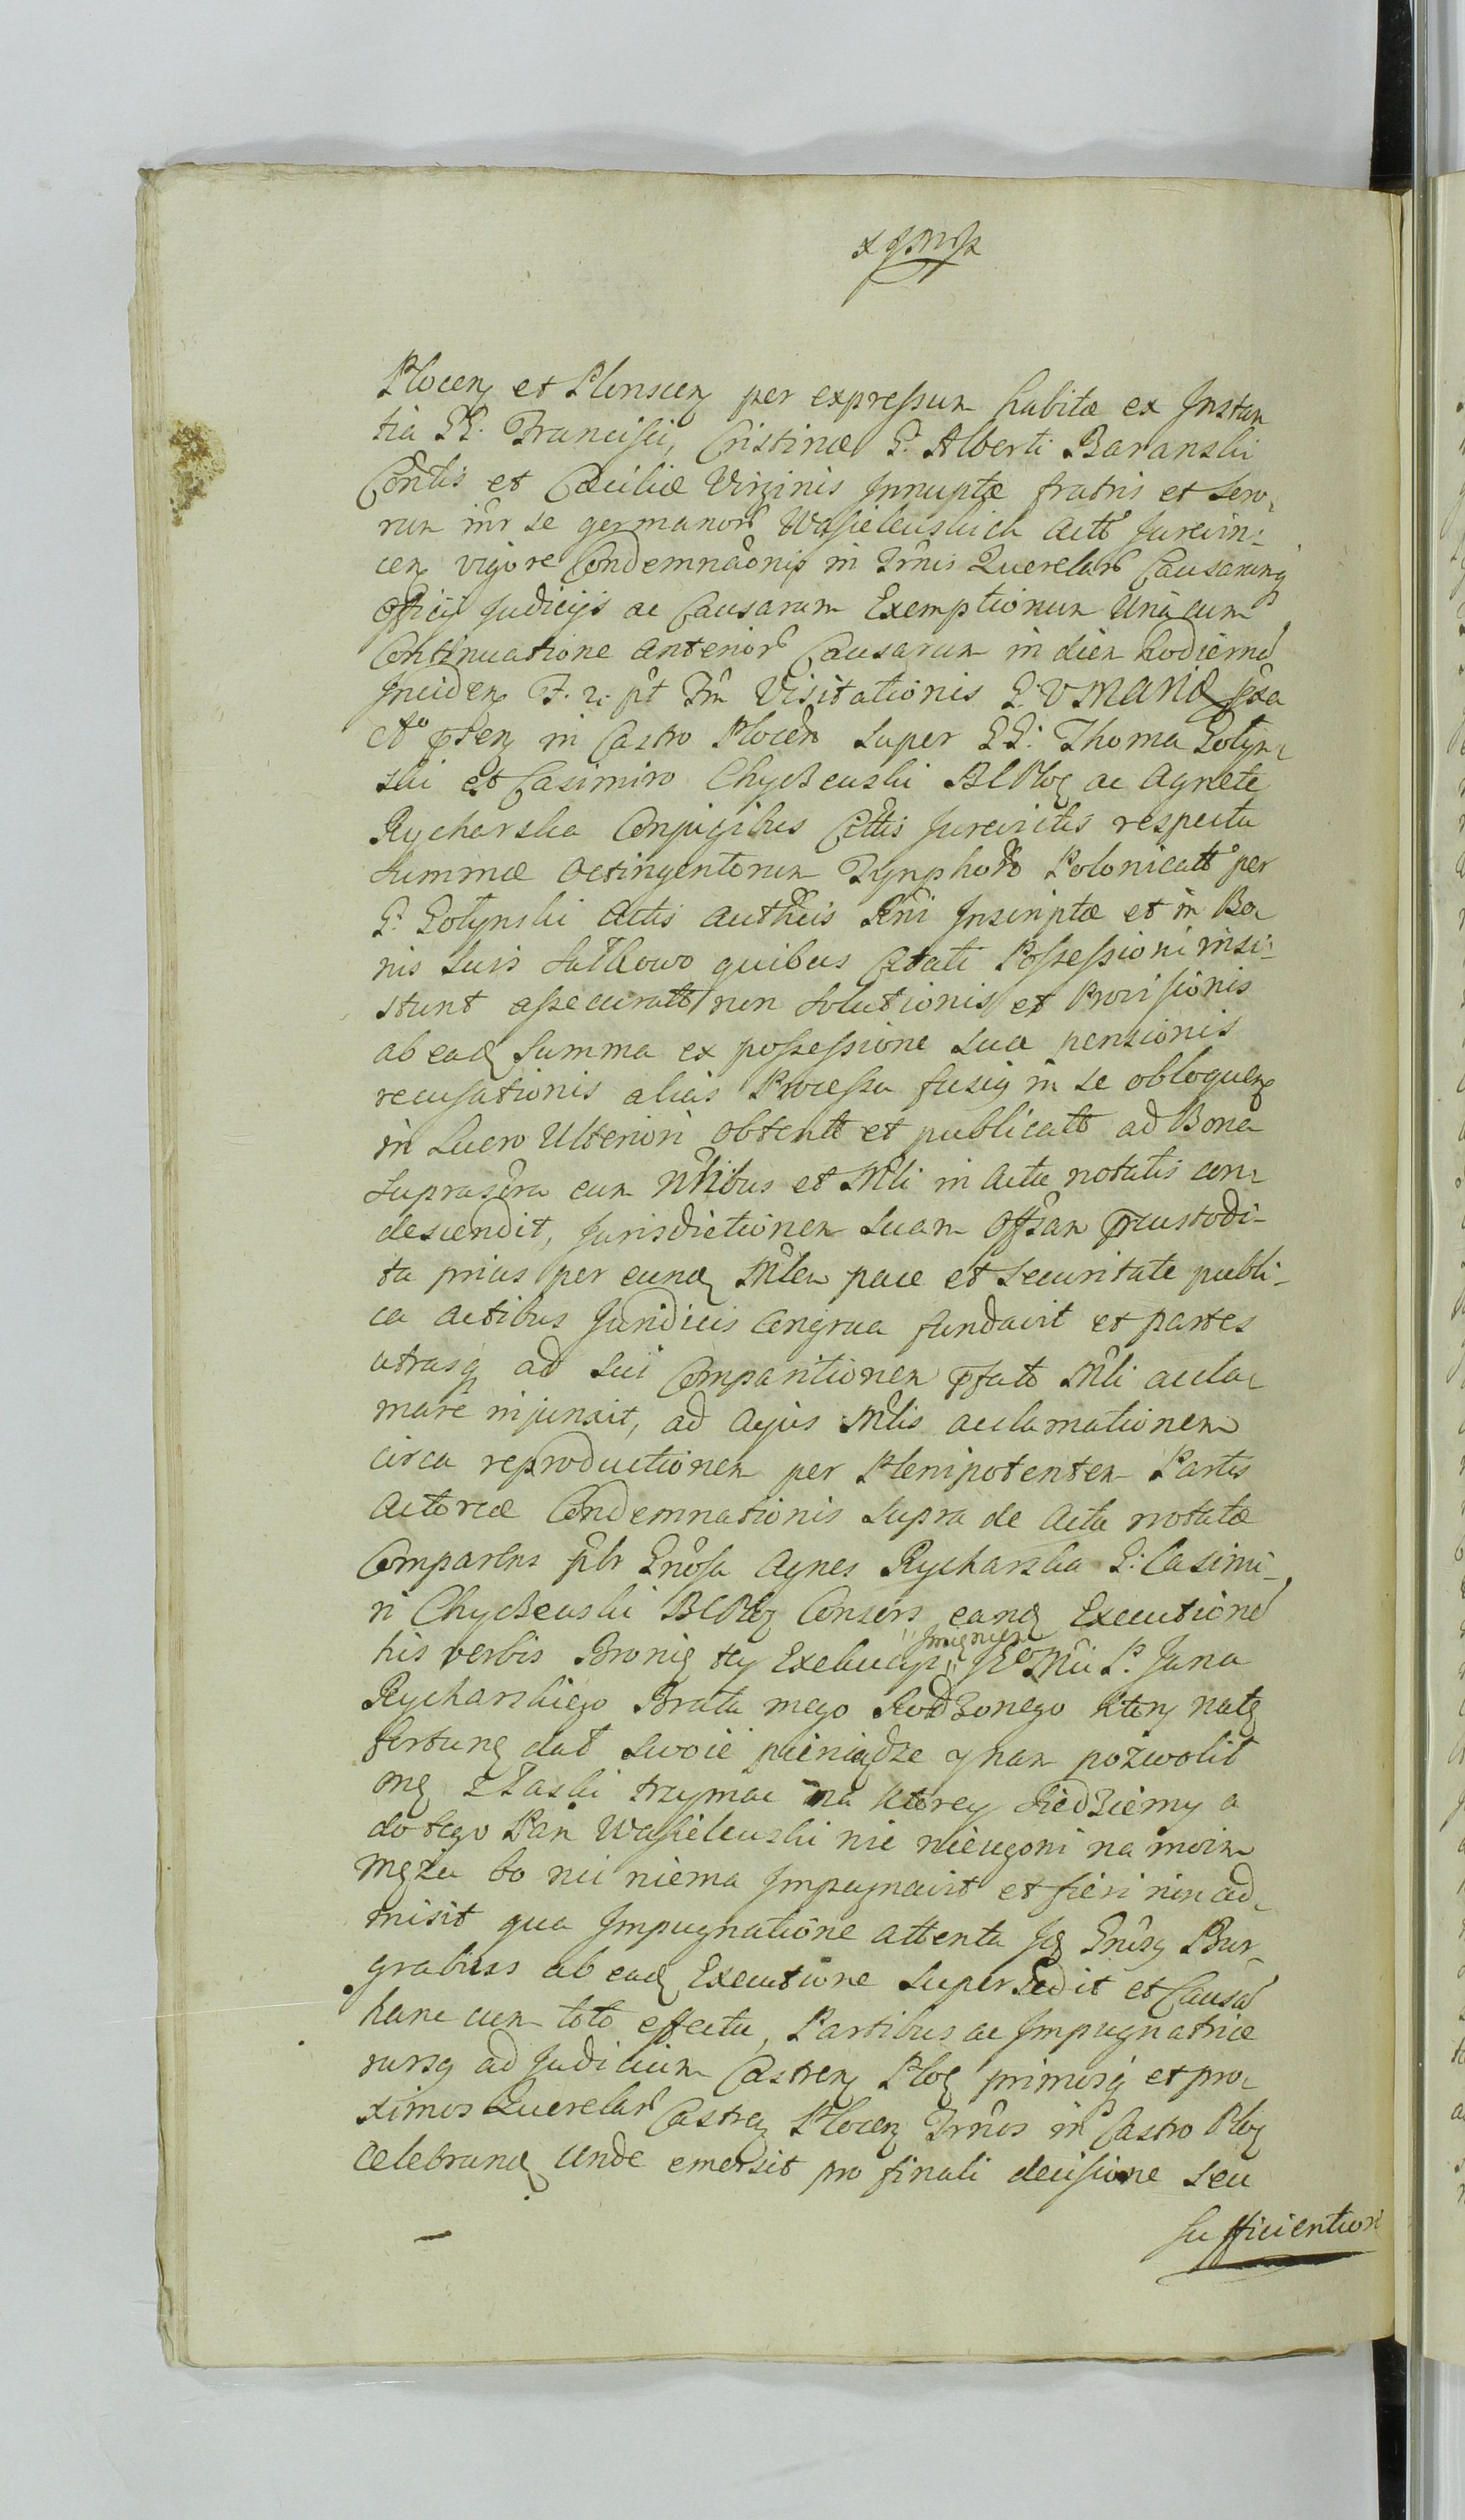 Plocen et Plonscen per expressum habitæ ex Instan
tia GG. Francisci, Cristinæ G. Alberti Baranski
Contis et Cæciliæ Virginis Innuptæ fratris et Soro,
rum inr se germanor Wasilewskich actt Jurevin:
cen vigore Condemnaonis in Trnis Querelar Causarumq
officij Judicijs ac Causarum Exemptionum Unacum
Continuatione anterior Causarum in diem hodiernam
Inciden F. 2. pt Fm Visitationis B. V MARIÆ
in Castro Plocen super GG. Thoma Golyn,
ski et Casimiro Chyczewski BCPloc ac Agnete
Rycharska Conjugibus Cittis Jurevictis respectu
Summæ Octingentorum Tynphor Polonicatt per
G. Golynski Actis authcis Inscriptæ et in Bo,
nis suis quibus Citati Possessioni insi:
stunt assecuratt non solutionis et Provisionis
ab eadq summa ex possessione sua pensionis
recusationis alias Processu fusiq in se obloquen
in Lucro Ulteriori obtentt et publicatt ad Bona
suprascra cum Nblibus et Mli in Actu notatis con,
descendit, Jurisdictionem suam Offsam præcustodi-
ta prius per eundq Mlem pace et securitate publi-
ca actibus Juridicis congrua fundavit et partes
utrasq ad sui Comparitionem pfatt Mli accla,
mare injunxit, ad cujus Mlis acclamationem
circa reproductionem per Plenipotentem Partis
Actoreæ Condemnationis supra de Actu notatæ
Comparens pblr Gnosa Agnes Rycharska G. Casimi-
ri Chyczewski BCPloc Consors eandq Executionem
his verbis Bronię tey Exekucyi Imieniem JEoMci P. Jana
Rycharskiego Brata mego Rodzonego ktory natę
fortunę dał swoie pieniądze y nam pozwolił
onę z Łaski trzymac na ktorey siedziemy a
dotego Pan Wasilewski nic nieugoni na moim
mężu bo nic niema Impugnavit et fieri non ad,
misit qua Impugnatione attenta Idq Gnsq Bur,
grabius ab eadq Executione supersedit et Causam
hanc cum toto effectu, Partibus ac Impugnatrice
rursq ad Judicium Castren Ploc primosq et pro,
ximos Querelar Castren Plocen Trnos in Castro Ploc
celebrandq Unde emersit pro finali decisione seu
sufficientiori